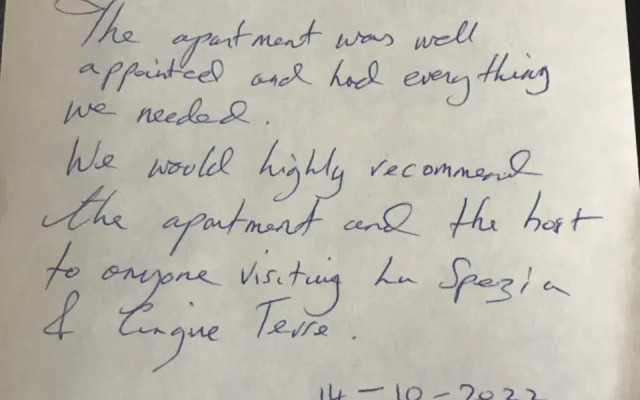 The apartment was well
appointed and had everything
we needed.
We would highly recommend
the apartment and the host
to anyone visiting La Spezia
& Cinque Terre.
14-10-2022